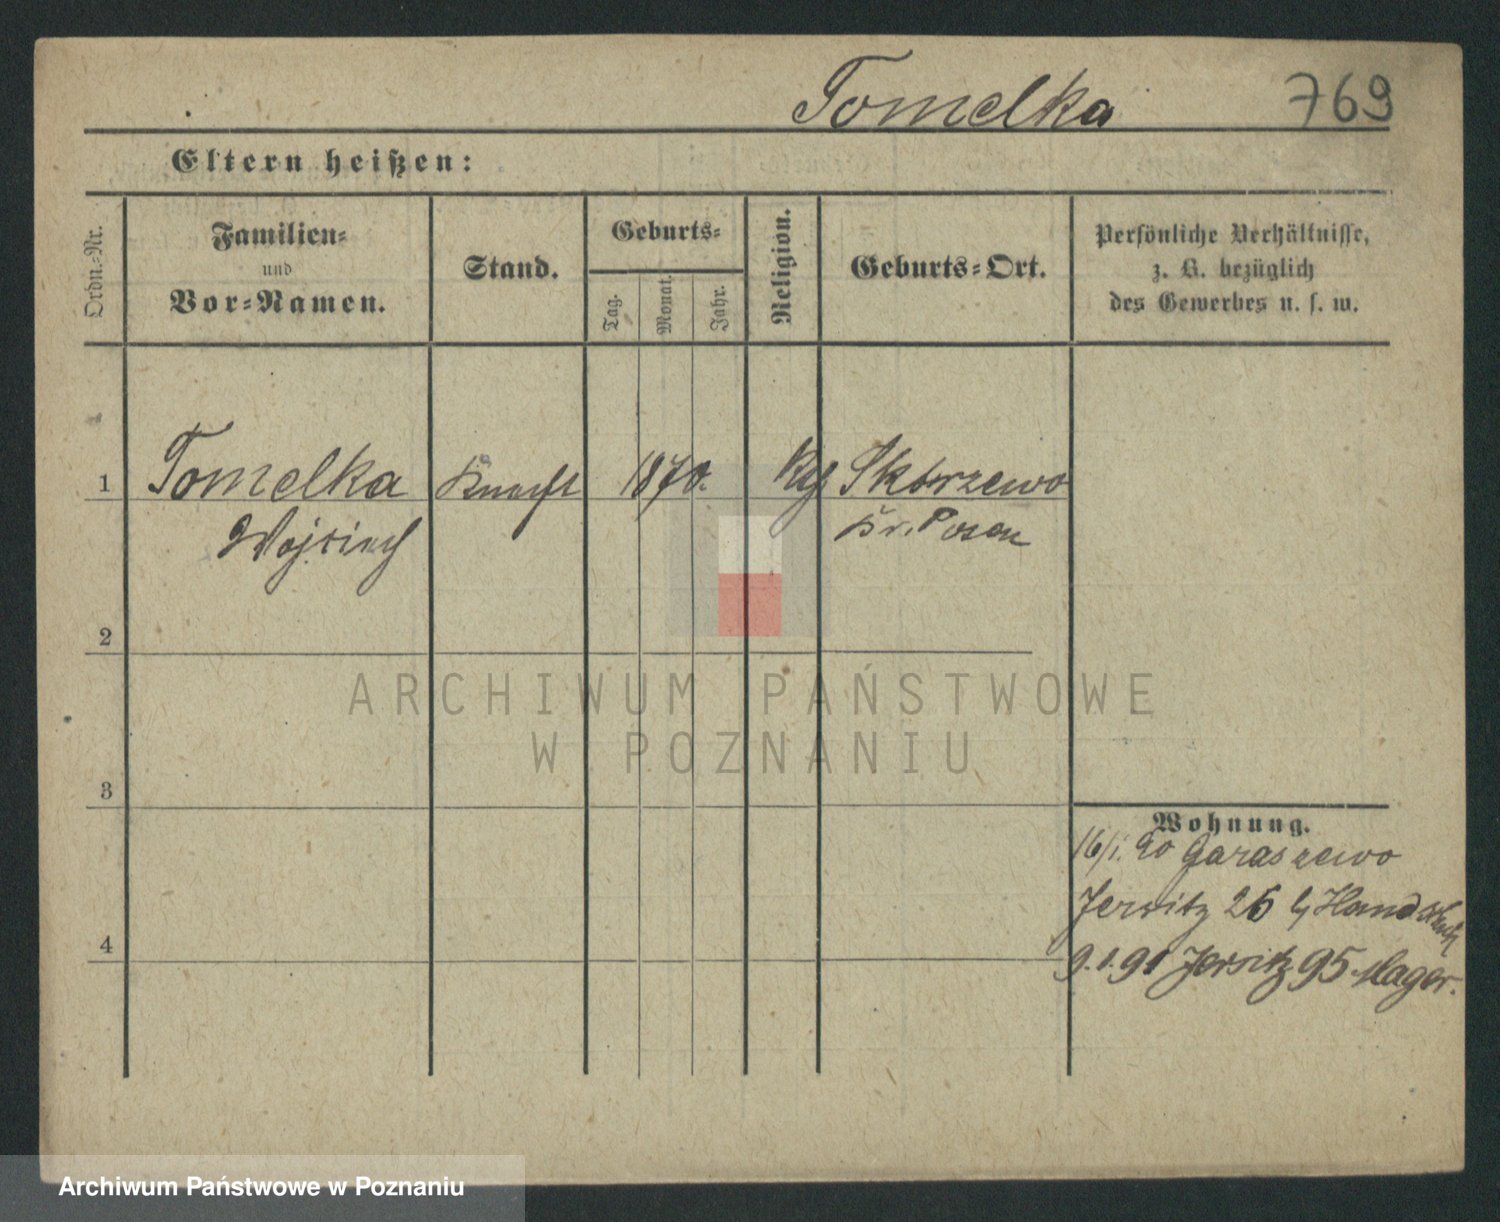 Tomelka 769
Eltern heißen:
Ordn.-Nr.
Familien-
und
Vor-Namen.
Stand.
Geburts-
Tag.
Monat.
Jahr.
Religion.
Geburts-Ort.
Persönliche Verhältnisse,
z. B. bezüglich
des Gewerbes u. s. w.
1 Tomelka Knecht 1870. Kth Skorzewo
Wojciech Kr. Posen
2
3
4
Wohnung.
16/1. 90 Garaszewo
Jersitz 26
9.1.91 Jersitz 95 Mager.
ARCHIWUM PAŃSTWOWE
W POZNANIU
Archiwum Państwowe w Poznaniu